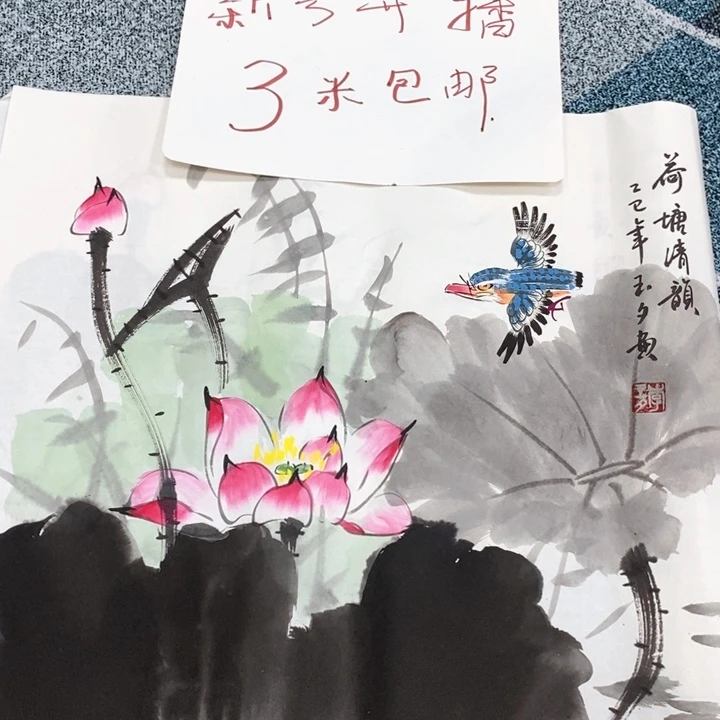 新号开播
3米包邮
荷塘清韻
乙巳年玉夕画